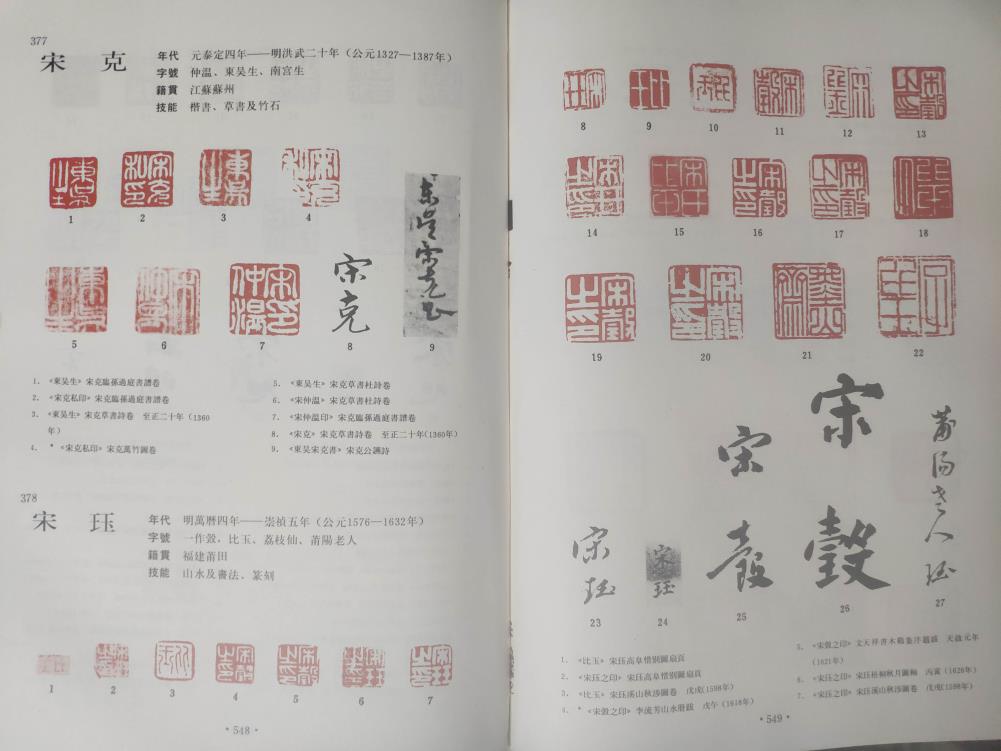 377
宋 克
年代 元泰定四年——明洪武二十年（公元1327—1387年）
字號 仲温、東吴生、南宫生
籍貫 江蘇蘇州
技能 楷書、草書及竹石
1 2 3 4
5 6 7 8 9
宋克
東吴宋克書
1. 《東吴生》宋克臨孫過庭書譜卷
2. 《宋克私印》宋克臨孫過庭書譜卷
3. 《東吴生》宋克草書詩卷 至正二十年（1360
年）
4. * 《宋克私印》宋克萬竹圖卷
5. 《東吴生》宋克草書杜詩卷
6. 《宋仲温》宋克草書杜詩卷
7. 《宋仲温印》宋克臨孫過庭書譜卷
8. 《宋克》宋克草書詩卷 至正二十年(1360年)
9. 《東吴宋克書》宋克公讌詩
378
宋 珏
年代 明萬曆四年——崇禎五年（公元1576—1632年）
字號 一作㲄、比玉、荔枝仙、莆陽老人
籍貫 福建莆田
技能 山水及書法、篆刻
1 2 3 4 5 6 7
·548·
8 9 10 11 12 13
14 15 16 17 18
19 20 21 22
宋珏
宋珏
宋㲄
宋㲄
莆陽老人珏
23 24 25 26 27
1. 《比玉》宋珏高阜惜别圖扇頁
2. 《宋珏之印》宋珏高阜惜别圖扇頁
3. 《比玉》宋珏溪山秋涉圖卷 戊戌(1598年)
4. * 《宋㲄之印》李流芳山水册跋 戊午(1618年)
5. 《宋㲄之印》文天祥書木鷄集序題跋 天啟元年
(1621年)
6. 《宋珏之印》宋珏梧桐秋月圖軸 丙寅(1626年)
7. 《宋珏之印》宋珏溪山秋涉圖卷 戊戌(1598年)
·549·